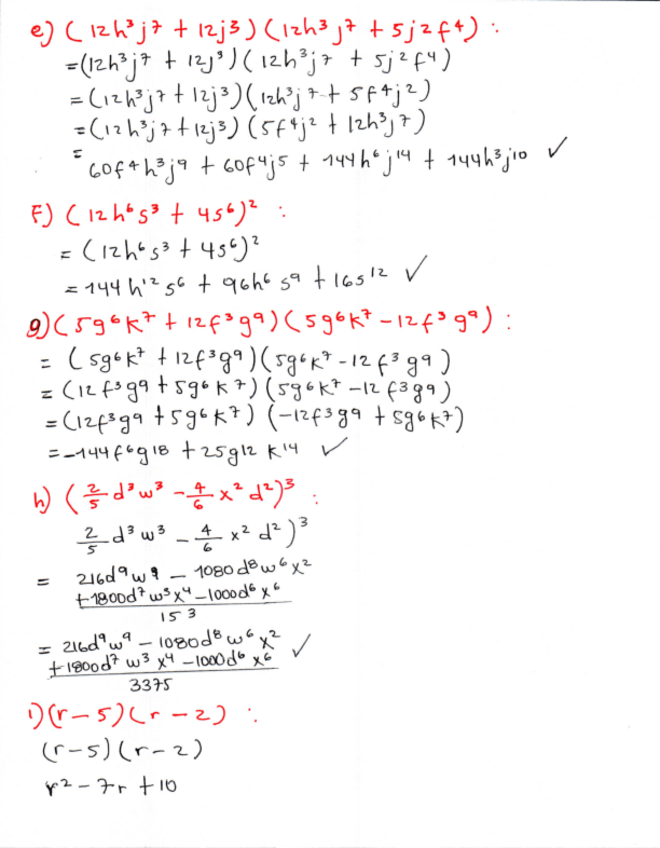 e) (12h³j⁷ + 12j³)(12h³j⁷ + 5j²f⁴) :
=(12h³j⁷ + 12j³)(12h³j⁷ + 5j²f⁴)
=(12h³j⁷ + 12j³)(12h³j⁷ + 5f⁴j²)
=(12h³j⁷ + 12j³)(5f⁴j² + 12h³j⁷)
= 60f⁴h³j⁹ + 60f⁴j⁵ + 144h⁶j¹⁴ + 144h³j¹⁰ ✓
F) (12h⁶s³ + 4s⁶)² :
= (12h⁶s³ + 4s⁶)²
= 144h¹²s⁶ + 96h⁶s⁹ + 16s¹² ✓
g) (5g⁶k⁷ + 12f³g⁹)(5g⁶k⁷ - 12f³g⁹) :
= (5g⁶k⁷ + 12f³g⁹)(5g⁶k⁷ - 12f³g⁹)
= (12f³g⁹ + 5g⁶k⁷)(5g⁶k⁷ - 12f³g⁹)
= (12f³g⁹ + 5g⁶k⁷)(-12f³g⁹ + 5g⁶k⁷)
= -144f⁶g¹⁸ + 25g¹²k¹⁴ ✓
h) (2/5 d³w³ - 4/6 x²d²)³ :
2/5 d³w³ - 4/6 x²d²)³
= 216d⁹w⁹ - 1080d⁸w⁶x²
+1800d⁷w³x⁴ - 1000d⁶x⁶
15³
= 216d⁹w⁹ - 1080d⁸w⁶x² ✓
+1800d⁷w³x⁴ - 1000d⁶x⁶
3375
i) (r - 5)(r - 2) :
(r - 5)(r - 2)
r² - 7r + 10